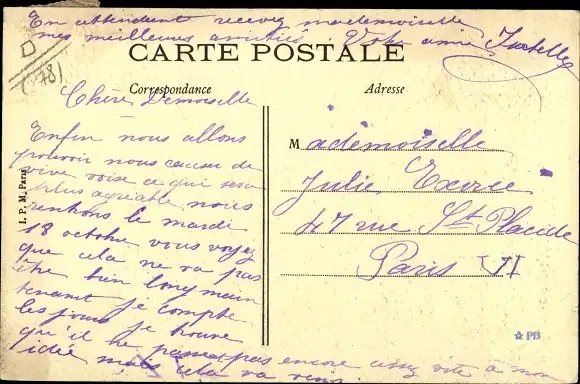 En attendant recevez mademoiselle
mes meilleures amitiés. Votre amie Isabelle
CARTE POSTALE
D
(78)
Correspondance
Adresse
Chère Demoiselle
Enfin nous allons
pouvoir nous causer de
vive voise ce qui sera
plus agréable nous
rentrons le mardi
18 octobre vous voyez
que cela ne va pas
être bien long main
tenant je compte
les jours je trouve
qu'il ne passe pas encore assez vite à mon
idée mais cela va venir
Mademoiselle
Julie
47 rue St Placide
Paris VI
I. P. M. Paris
PB